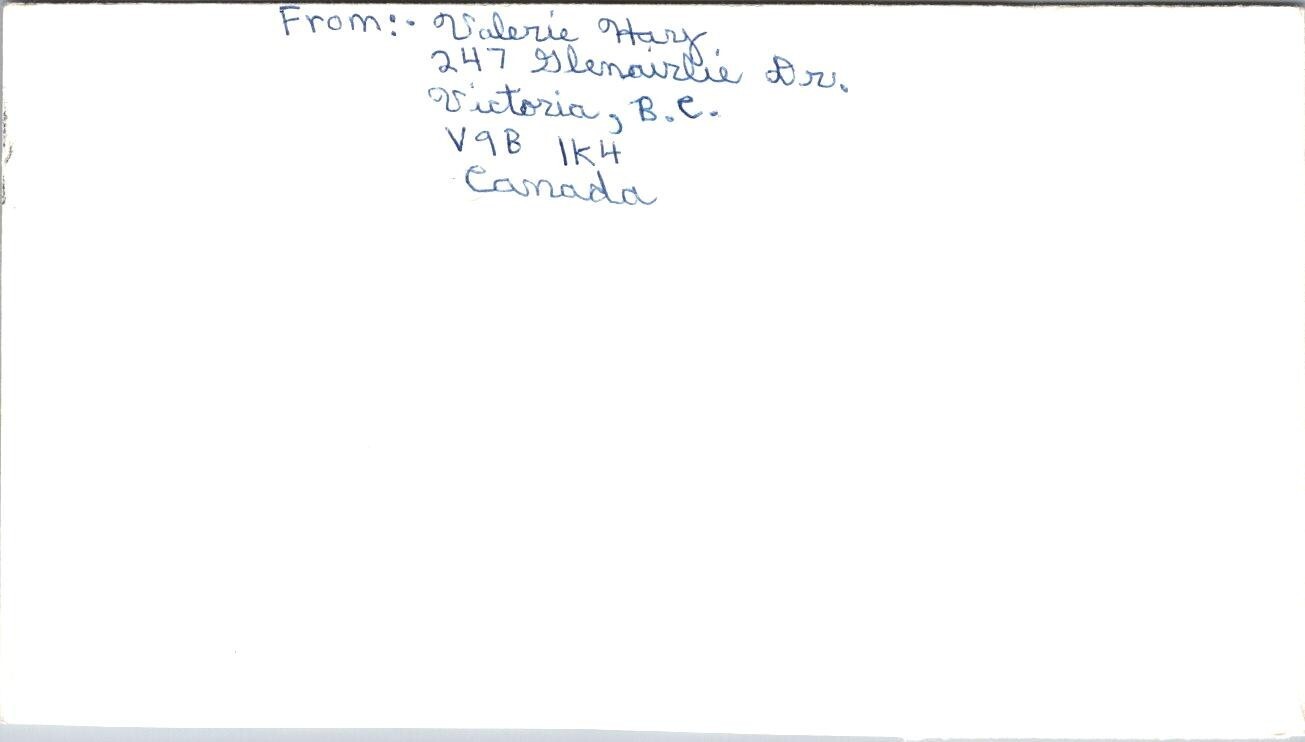 From:- Valerie Hary
247 Glenairlie Dr.
Victoria, B.C.
V9B 1K4
Canada